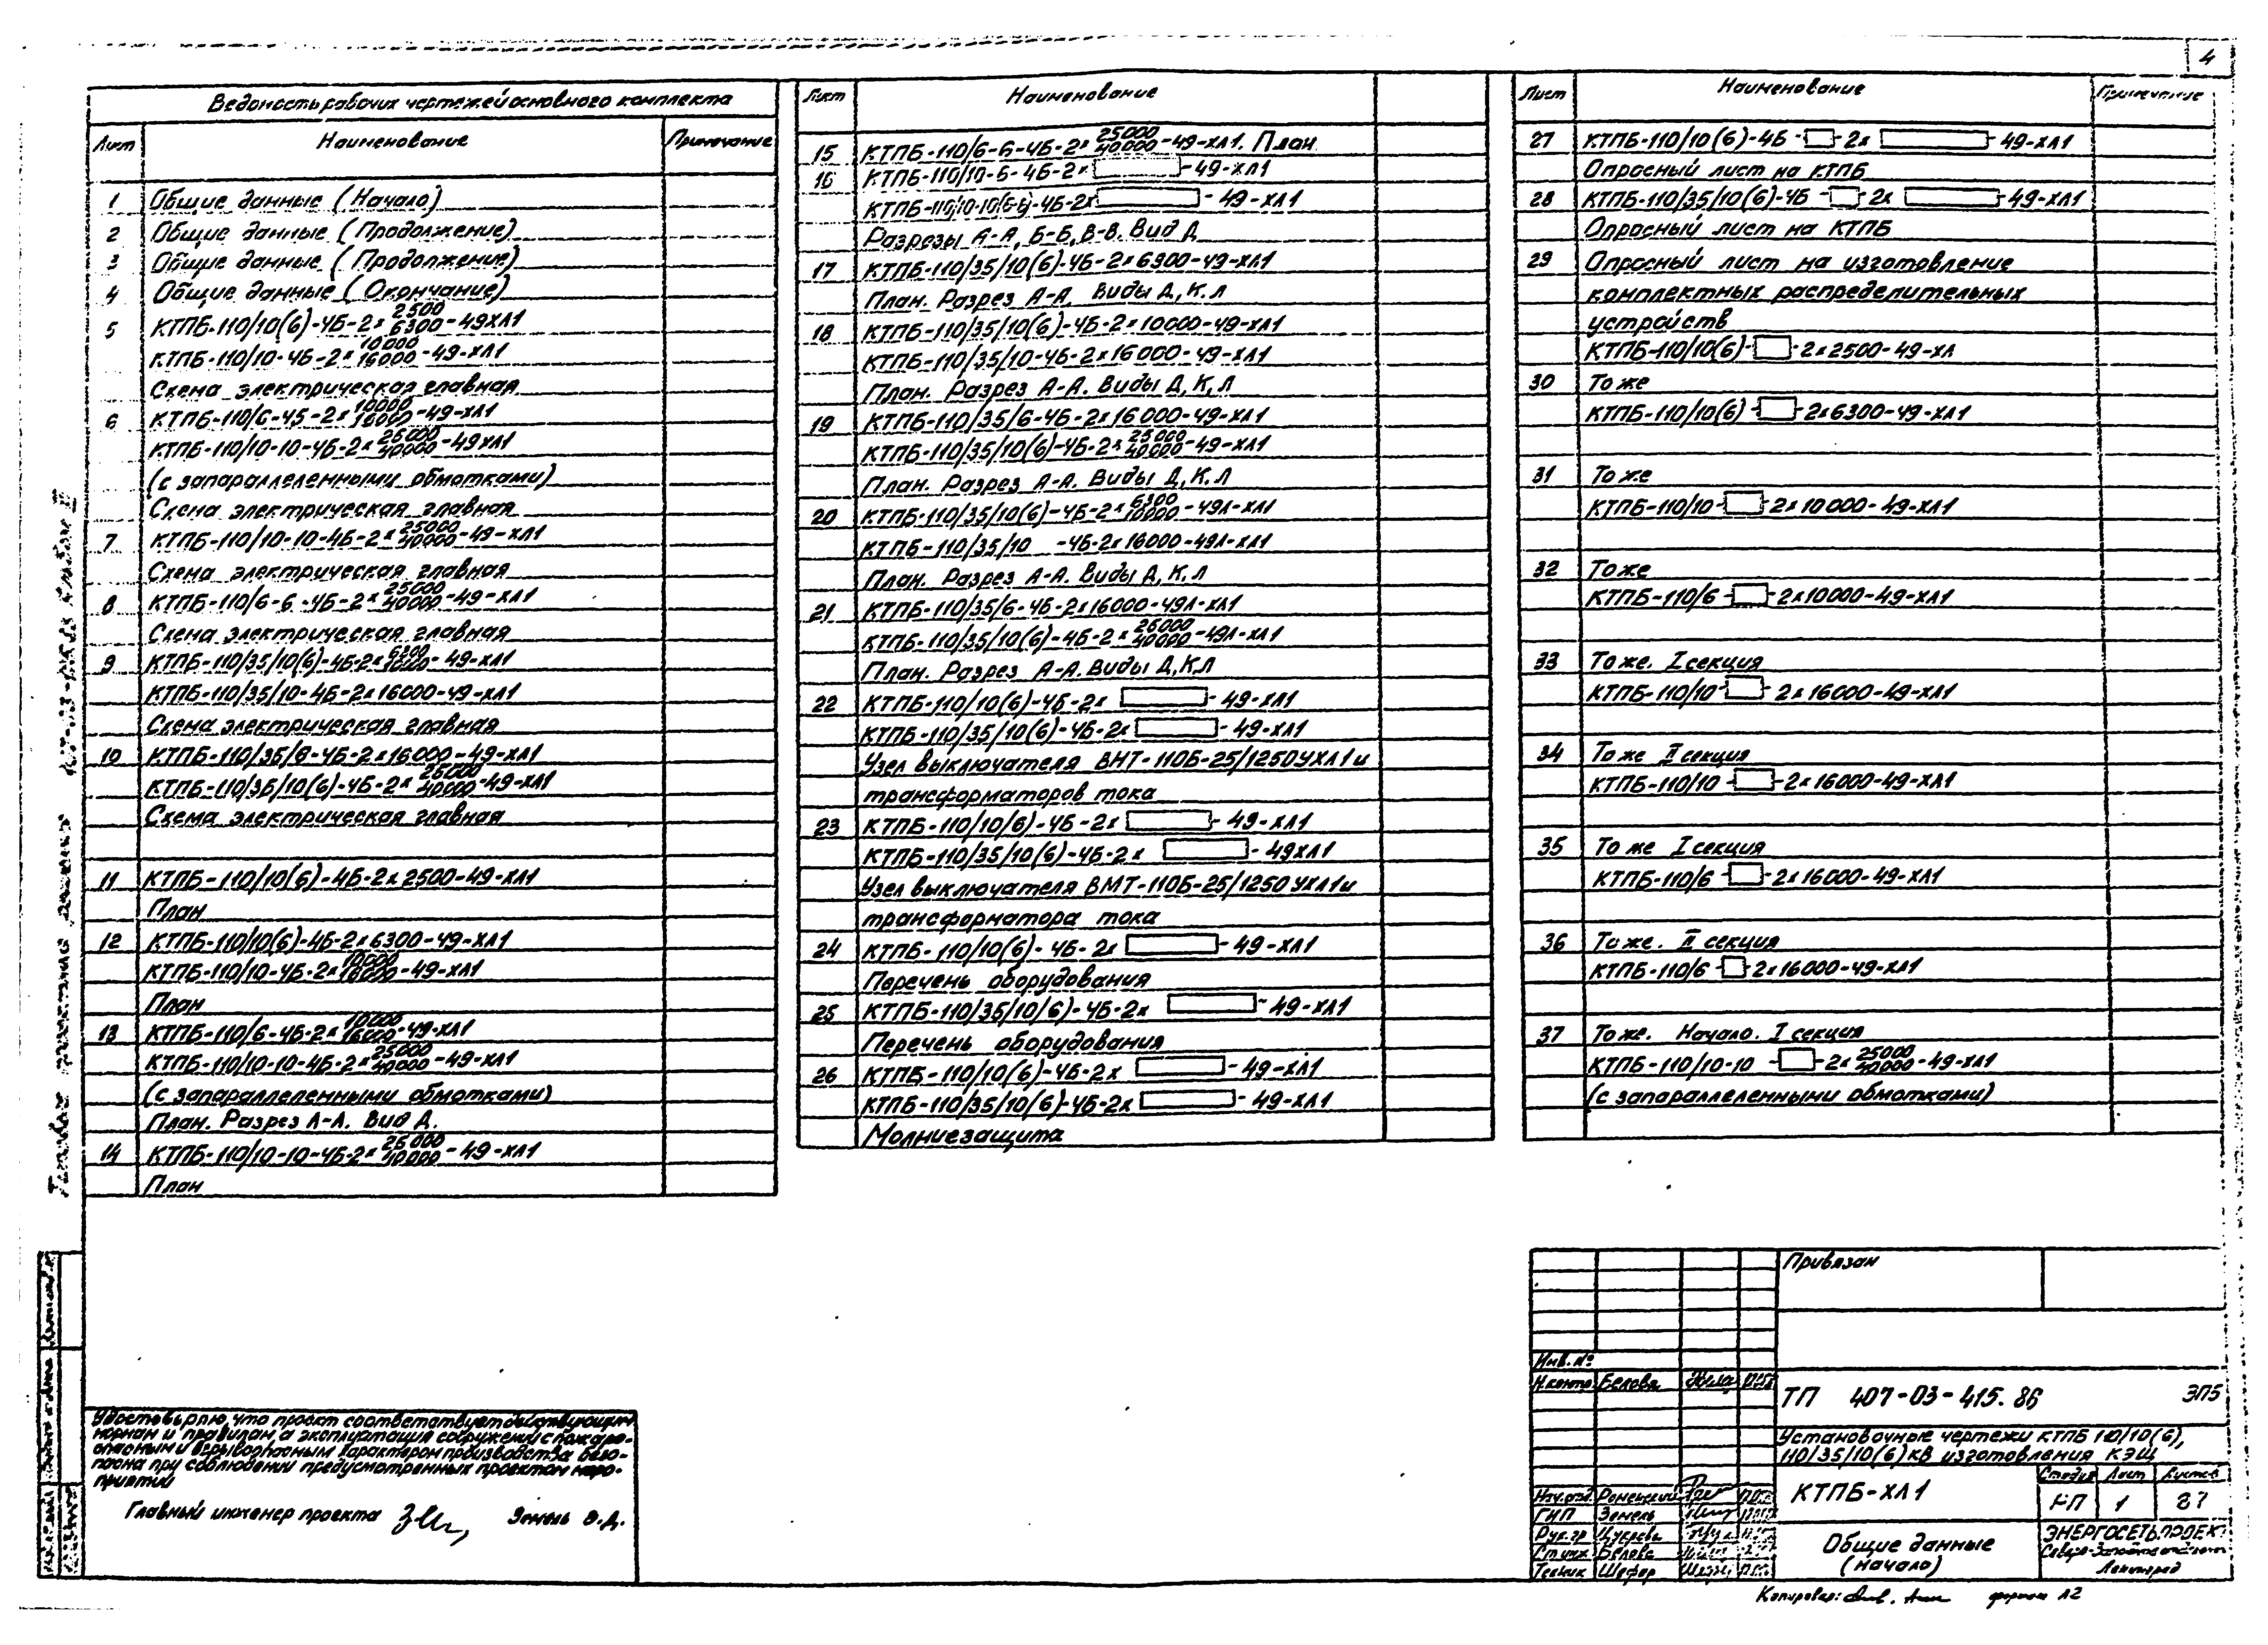 4
Ведомость рабочих чертежей основного комплекта
Лист Наименование Примечание
1 Общие данные (Начало)
2 Общие данные (Продолжение)
3 Общие данные (Продолжение)
4 Общие данные (Окончание)
5 КТПБ-110/10(6)-4Б-2х 2500/6300-49ХЛ1
КТПБ-110/10-4Б-2х 10000/16000-49-ХЛ1
Схема электрическая главная
6 КТПБ-110/6-4Б-2х 10000/16000-49-ХЛ1
КТПБ-110/10-10-4Б-2х 25000/40000-49ХЛ1
(с запараллеленными обмотками)
Схема электрическая главная
7 КТПБ-110/10-10-4Б-2х 25000/40000-49-ХЛ1
Схема электрическая главная
8 КТПБ-110/6-6-4Б-2х 25000/40000-49-ХЛ1
Схема электрическая главная
9 КТПБ-110/35/10(6)-4Б-2х 6300/10000-49-ХЛ1
КТПБ-110/35/10-4Б-2х16000-49-ХЛ1
Схема электрическая главная
10 КТПБ-110/35/6-4Б-2х16000-49-ХЛ1
КТПБ-110/35/10(6)-4Б-2х 25000/40000-49-ХЛ1
Схема электрическая главная
11 КТПБ-110/10(6)-4Б-2х2500-49-ХЛ1
План
12 КТПБ-110/10(6)-4Б-2х6300-49-ХЛ1
КТПБ-110/10-4Б-2х 10000/16000-49-ХЛ1
План
13 КТПБ-110/6-4Б-2х 10000/16000-49-ХЛ1
КТПБ-110/10-10-4Б-2х 25000/40000-49-ХЛ1
(с запараллеленными обмотками)
План. Разрез А-А. Вид Д.
14 КТПБ-110/10-10-4Б-2х 25000/40000-49-ХЛ1
План
Лист Наименование
15 КТПБ-110/6-6-4Б-2х 25000/40000-49-ХЛ1. План
16 КТПБ-110/10-6-4Б-2х -49-ХЛ1
КТПБ-110/10-10(6-6)-4Б-2х -49-ХЛ1
Разрезы А-А, Б-Б, В-В. Вид Д
17 КТПБ-110/35/10(6)-4Б-2х6300-49-ХЛ1
План. Разрез А-А. Виды Д, К, Л
18 КТПБ-110/35/10(6)-4Б-2х10000-49-ХЛ1
КТПБ-110/35/10-4Б-2х16000-49-ХЛ1
План. Разрез А-А. Виды Д, К, Л
19 КТПБ-110/35/6-4Б-2х16000-49-ХЛ1
КТПБ-110/35/10(6)-4Б-2х 25000/40000-49-ХЛ1
План. Разрез А-А. Виды Д, К, Л
20 КТПБ-110/35/10(6)-4Б-2х 6300/10000-49Л-ХЛ1
КТПБ-110/35/10 -4Б-2х16000-49Л-ХЛ1
План. Разрез А-А. Виды Д, К, Л
21 КТПБ-110/35/6-4Б-2х16000-49Л-ХЛ1
КТПБ-110/35/10(6)-4Б-2х 25000/40000-49Л-ХЛ1
План. Разрез А-А. Виды Д, К, Л
22 КТПБ-110/10(6)-4Б-2х -49-ХЛ1
КТПБ-110/35/10(6)-4Б-2х -49-ХЛ1
Узел выключателя ВМТ-110Б-25/1250УХЛ1 и
трансформаторов тока
23 КТПБ-110/10/6)-4Б-2х -49-ХЛ1
КТПБ-110/35/10(6)-4Б-2х -49ХЛ1
Узел выключателя ВМТ-110Б-25/1250 УХЛ1 и
трансформатора тока
24 КТПБ-110/10(6)-4Б-2х -49-ХЛ1
Перечень оборудования
25 КТПБ-110/35/10/6)-4Б-2х -49-ХЛ1
Перечень оборудования
26 КТПБ-110/10(6)-4Б-2х -49-ХЛ1
КТПБ-110/35/10/6)-4Б-2х -49-ХЛ1
Молниезащита
Лист Наименование Примечание
27 КТПБ-110/10(6)-4Б- -2х -49-ХЛ1
Опросный лист на КТПБ
28 КТПБ-110/35/10(6)-4Б- -2х -49-ХЛ1
Опросный лист на КТПБ
29 Опросный лист на изготовление
комплектных распределительных
устройств
КТПБ-110/10(6)- -2х2500-49-ХЛ
30 То же
КТПБ-110/10(6)- -2х6300-49-ХЛ1
31 То же
КТПБ-110/10- -2х10000-49-ХЛ1
32 То же
КТПБ-110/6- -2х10000-49-ХЛ1
33 То же. I секция
КТПБ-110/10- -2х16000-49-ХЛ1
34 То же II секция
КТПБ-110/10- -2х16000-49-ХЛ1
35 То же I секция
КТПБ-110/6- -2х16000-49-ХЛ1
36 То же. II секция
КТПБ-110/6- -2х16000-49-ХЛ1
37 То же. Начало. I секция
КТПБ-110/10-10- -2х 25000/40000-49-ХЛ1
(с запараллеленными обмотками)
Удостоверяю, что проект соответствует действующим
нормам и правилам, а эксплуатация сооружений с пожаро-
опасным и взрывоопасным характером производства безо-
пасна при соблюдении предусмотренных проектом меро-
приятий
Главный инженер проекта Земель
Привязан
Инв. №
Н.контр. Белова
ТП 407-03-415.86 ЭП5
Установочные чертежи КТПБ 110/10(6),
110/35/10(6)кВ изготовления КЭЩ
Нач.отд. Роменский
ГИП Земель
Рук.гр Цукрева
Ст.инж Белова
Техник Шефер
КТПБ-ХЛ1
Стадия Лист Листов
РП 1 87
Общие данные
(начало)
ЭНЕРГОСЕТЬПРОЕКТ
Северо-Западное отделение
Ленинград
Копировал: формат А2